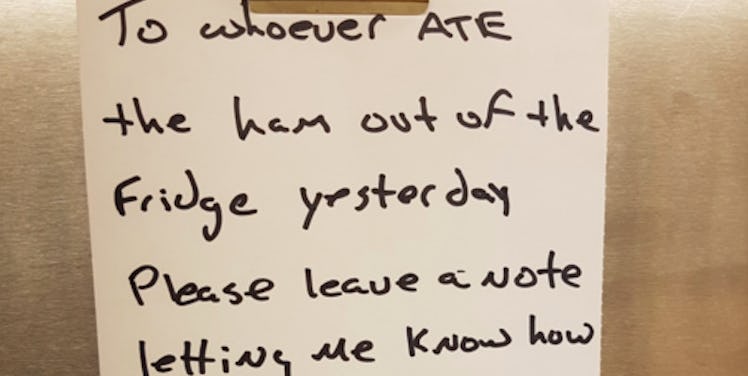 To whoever ATE
the ham out of the
Fridge yesterday
Please leave a Note
letting Me Know how